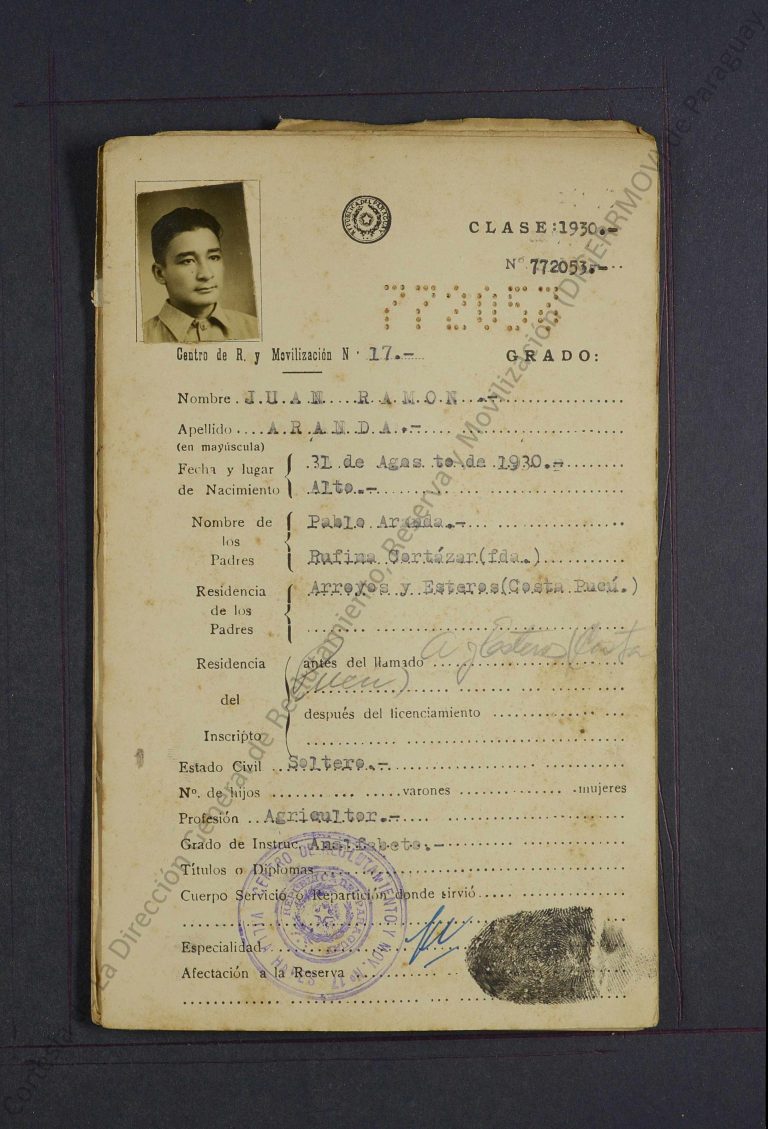 REPUBLICA DEL PARAGUAY
CLASE: 1930.-
Nº 772053.-
772053
Centro de R. y Movilización N· 17.-
GRADO:
Nombre JUAN RAMON .-
Apellido ARANDA.-
(en mayúscula)
Fecha y lugar de Nacimiento 31 de Agosto de 1930.-
Alto.-
Nombre de los Padres Pablo Aranda.-
Rufina Cortázar(fda.)
Residencia de los Padres Arroyos y Esteros(Costa Pucú.)
Residencia del Inscripto antes del llamado A y Esteros (Costa
después del licenciamiento
Estado Civil Soltero.-
Nº. de hijos varones mujeres
Profesión Agricultor.-
Grado de Instruc. Analfabeto.-
Títulos o Diplomas
Cuerpo Servicio o Repartición donde sirvió
Especialidad
Afectación a la Reserva
CENTRO DE RECLUTAMIENTO Y MOV. Nº 17
REPUBLICA DEL PARAGUAY
La Dirección General de Reclutamiento, Reserva y Movilización (DISERMOV) de Paraguay